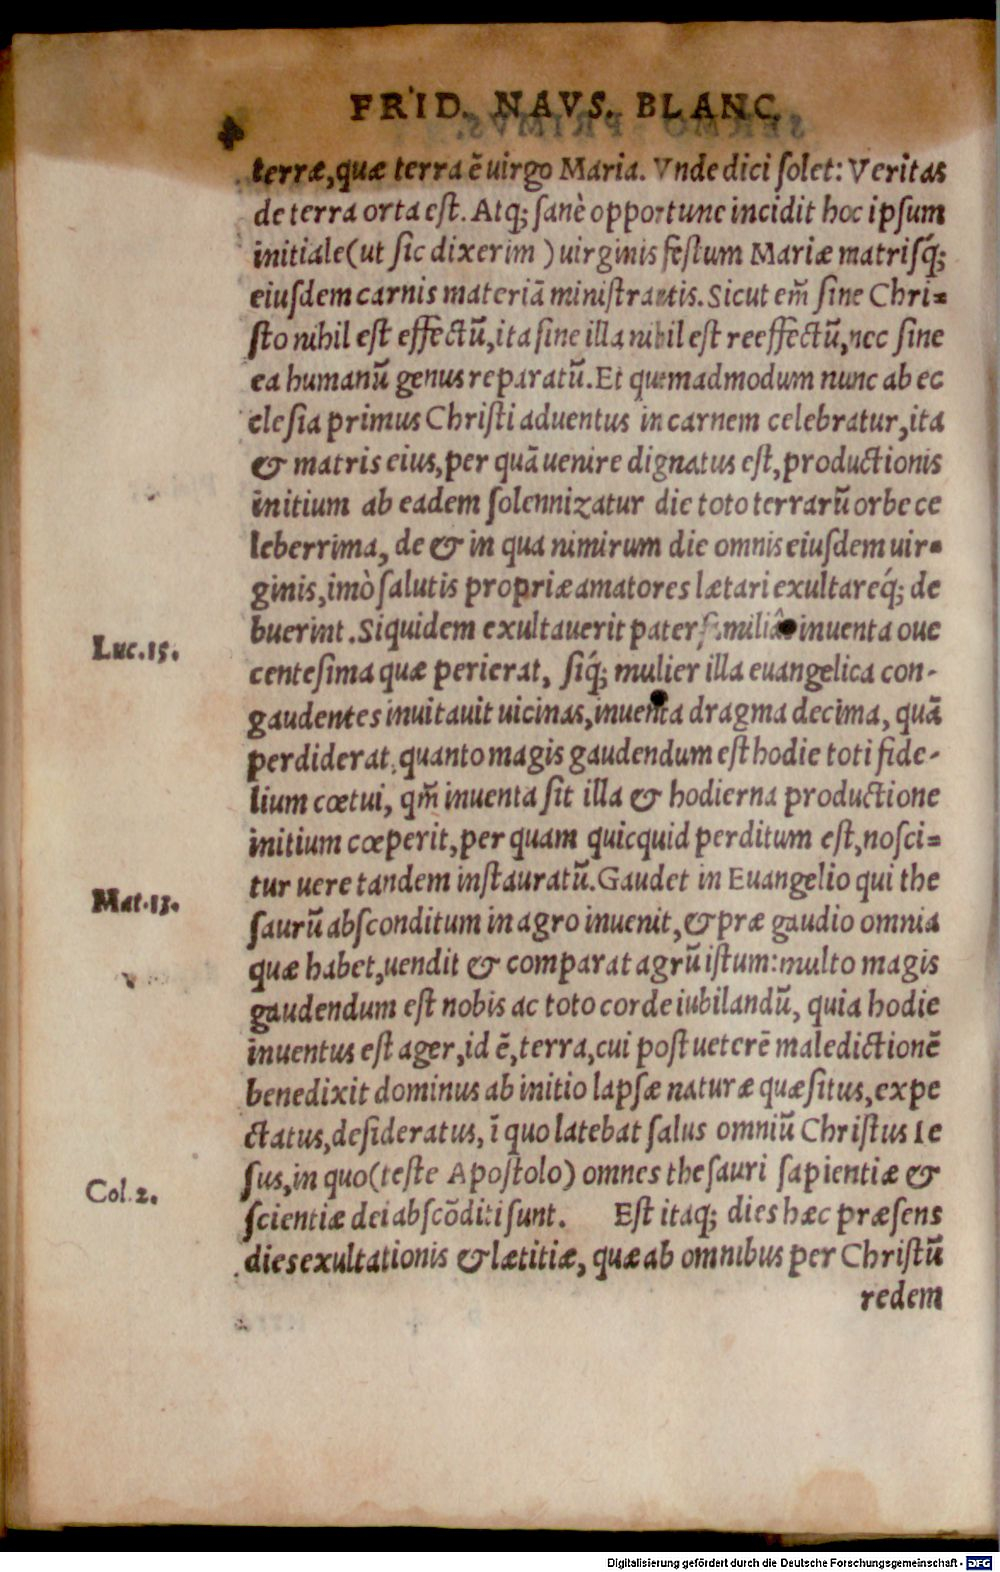 FRID. NAVS. BLANC.
terræ, quæ terra ē uirgo Maria. Vnde dici ſolet: Veritas
de terra orta eſt. Atq; ſanè opportune incidit hoc ipſum
initiale (ut ſic dixerim) uirginis feſtum Mariæ matriſq́;
eiuſdem carnis materiā miniſtrantis. Sicut em̄ ſine Chri-
ſto nihil eſt effectū, ita ſine illa nihil eſt reeffectū, nec ſine
ea humanū genus reparatū. Et quemadmodum nunc ab ec
cleſia primus Chriſti aduentus in carnem celebratur, ita
& matris eius, per quā uenire dignatus eſt, productionis
initium ab eadem ſolennizatur die toto terrarū orbe ce
leberrima, de & in qua nimirum die omnis eiuſdem uir-
ginis, imò ſalutis propriæ amatores lætari exultareq́; de
buerint. Siquidem exultauerit pater familiâs inuenta oue
Luc. 15.
centeſima quæ perierat, ſiq́; mulier illa euangelica con-
gaudentes inuitauit uicinas, inuenta dragma decima, quā
perdiderat, quanto magis gaudendum eſt hodie toti fide-
lium cœtui, qm̄ inuenta ſit illa & hodierna productione
initium cœperit, per quam quicquid perditum eſt, noſci-
tur uere tandem inſtauratū. Gaudet in Euangelio qui the
Mat. 13.
ſaurū abſconditum in agro inuenit, & præ gaudio omnia
quæ habet, uendit & comparat agrū iſtum: multo magis
gaudendum eſt nobis ac toto corde iubilandū, quia hodie
inuentus eſt ager, id ē, terra, cui poſt ueterē maledictionē
benedixit dominus ab initio lapſæ naturæ quæſitus, expe
ctatus, deſideratus, ī quo latebat ſalus omniū Chriſtus Ie
ſus, in quo (teſte Apoſtolo) omnes theſauri ſapientiæ &
Col. 2.
ſcientiæ dei abſcōditi ſunt. Eſt itaq; dies hæc præſens
dies exultationis & lætitiæ, quæ ab omnibus per Chriſtū
redem
Digitalisierung gefördert durch die Deutsche Forschungsgemeinschaft - DFG